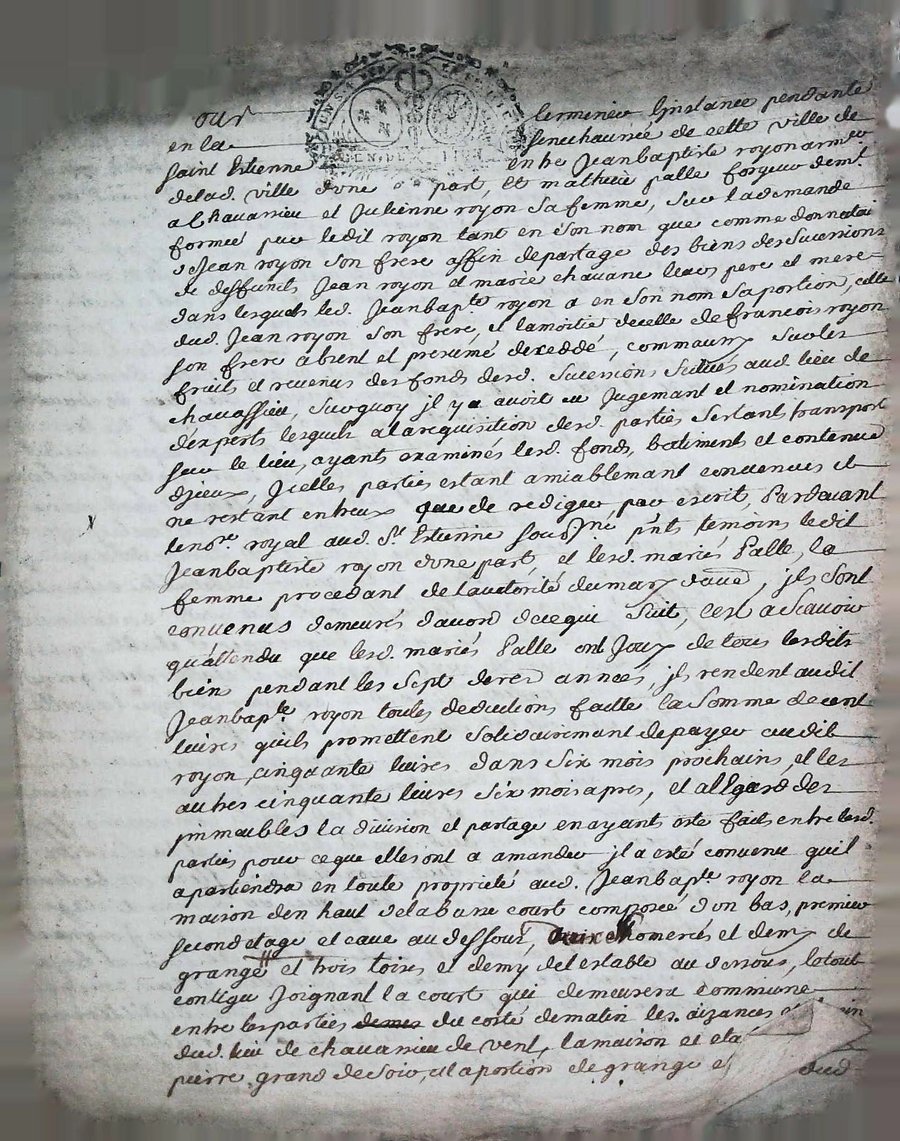 Pour terminer Linstance pendante
en la Senechaussée de cette ville de
Saint Estienne entre Jeanbaptiste royon armeur
delad. ville dune part, Et mathieu palle forgeur dem.t
a Chavassieu et Julienne royon sa femme, sur la demande
formée par ledit royon tant en Son nom que comme donnatai
de Jean royon son frere affin departage des biens des Sucessions
de deffunts Jean royon et marie chavane leurs pere et mere
dans lesquels led. Jeanbap.te royon a en son nom sa portion, celle
dud. Jean royon son frere, et lamoitié decelle de francois royon
son frere absent et presumé deceddé, comm aussy Surles
fruits et revenus des fonds desd. Sucessions Situés aud lieu de
chavassieu, surquoy jl y a avoit eu Jugemant et nomination
dexperts lesquels alarequisition desd. parties sestant transport
sur le lieu, ayants examinés lesd. fonds, batiment et contenue
djceux, Jcelles parties estant amiablemant convenues et
ne restant entreux que de rediger par escrit, Pardevant
leno.re royal aud. S.t Estienne Sousigné p.nts temoins ledit
Jeanbaptiste royon dune part, et lesd. mariés Palle, la
femme procedant de lautorité dumary d'autre, jls sont
convenus demeurés dacord dece qui Suit, cest a Scavoir
qu'attendu que lesd. mariés Palle ont Jouy de tous lesdits
bien pendant les Sept dernieres années, jls rendent audit
Jeanbap.te royon toutes deductions faitte la Somme de cent
livres quils promettent solidairemant depayer audit
royon cinquante livres dans Six mois prochains, et les
autres cinquante livres Six mois apres, et alEgard des
jmmeubles la division et partage enayant esté fait entre lesd.
parties pour ceque elles ont a amander jl a esté convenu quil
apartiendra en toute propriété aud. Jeanbap.te royon la
maison den haut delabasse court composée d'un bas, premier
second etage et cave au dessous, chomerés et demy de
grange et trois toises et demy del estable au dessous, letout
contigu Joignant la court qui demeurera commune
entre lesparties du costé dematin les aizances
dud. lieu de chavassieu de vent, lamaison et
pierre grand de soir, et laportion de grange dud